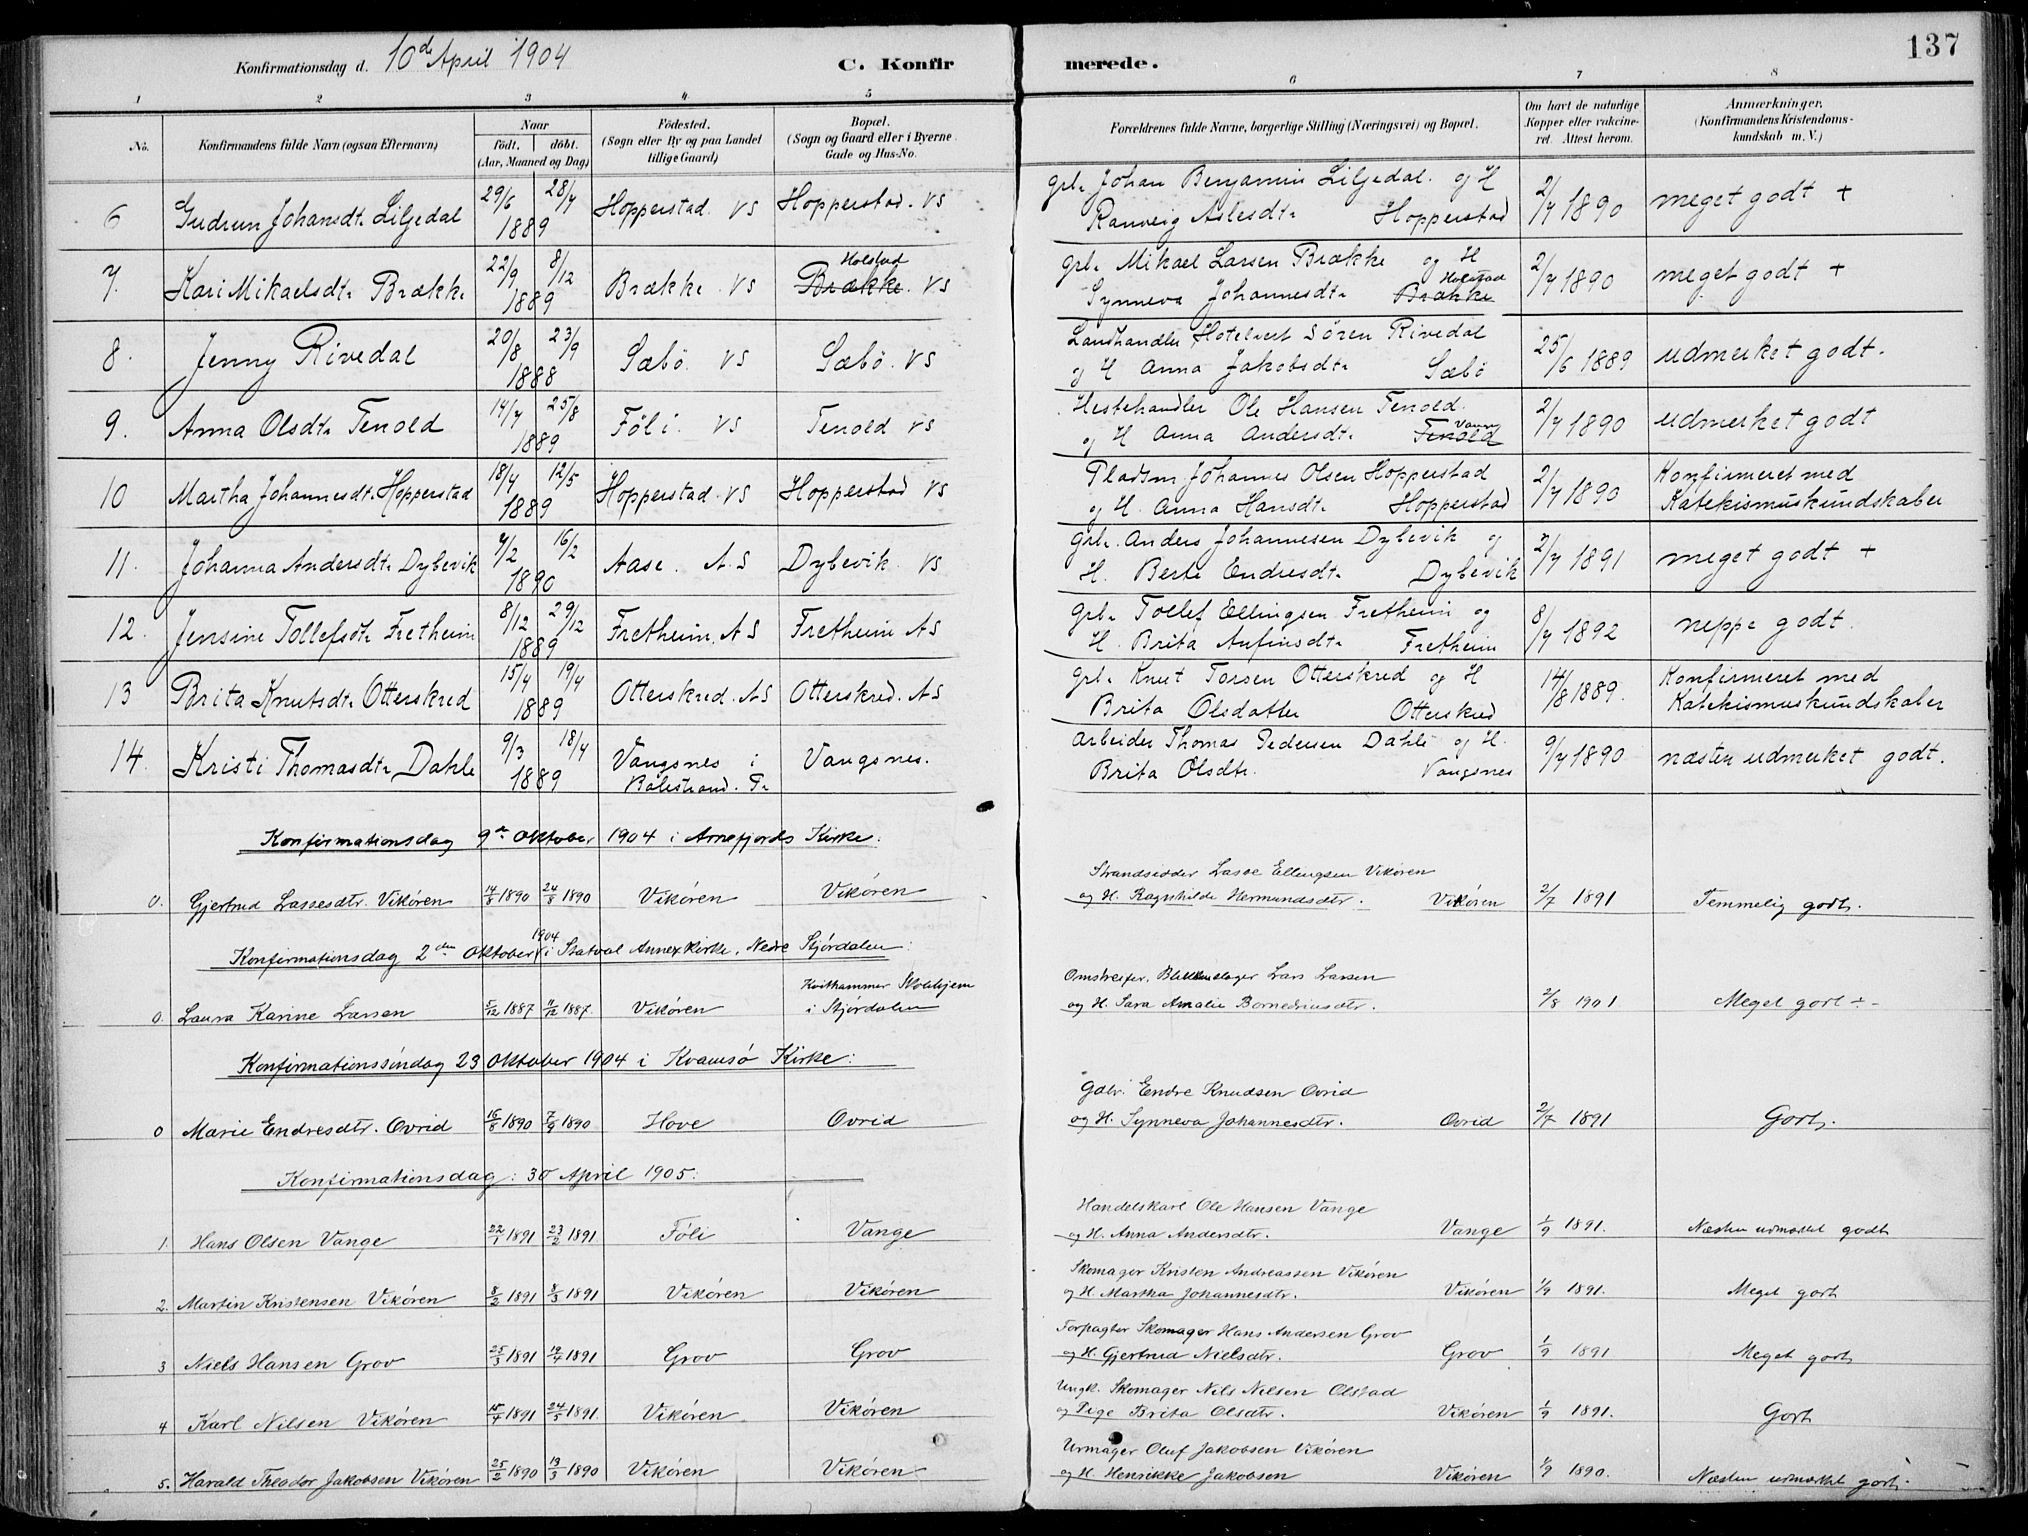 137
Konfirmationsdag d. 10de April 1904 C. Konfirmerede.
1 2 3 4 5 6 7 8
No. Konfirmandens fulde Navn (ogsaa Efternavn) Naar født. døbt. (Aar, Maaned og Dag) Fødested. (Sogn eller By og paa Landet tillige Gaard) Bopæl. (Sogn og Gaard eller i Byerne Gade og Hus-No. Forældrenes fulde Navne, borgerlige Stilling (Næringsvei) og Bopæl. Om havt de naturlige Kopper eller vakcineret. Attest herom. Anmærkninger. (Konfirmandens Kristendomskundskab m. V.)
6 Gudrun Johansdtr Liljedal 29/6 28/7 1889 Hopperstad VS Hopperstad. VS Grbr Johan Benjamin Liljedal. og H
Ranveig Aslesdtr Hopperstad 2/7 1890 meget godt +
7. Kari Mikaelsdtr Brække 22/9 8/12 1889 Brække. VS Holstad Brække. VS Grbr Mikael Larsen Brække og H
Synneva Johannesdtr Holstad Brække 2/7 1890 meget godt +
8. Jenny Rivedal 20/8 23/9 1888 Sæbö. VS Sæbö. VS Landhandler, Hotelvert Sören Rivedal
og H Anna Jakobsdtr Sæbö 25/6 1889 udmerket godt.
9. Anna Olsdtr Tenold 14/7 25/8 1889 Föli. VS Tenold VS Hestehandler Ole Hansen Tenold.
og H Anna Andersdtr Vange Tenold 2/7 1890 udmerket godt
10 Martha Johannesdtr. Hopperstad 18/4 12/5 1889 Hopperstad. VS Hopperstad VS Pladsm Johannes Olsen Hopperstad
og H. Anna Hansdtr Hopperstad 2/7 1890 Konfirmeret med Katekismuskundskaber
11. Johanna Andersdtr Dybevik 4/2 16/2 1890 Aase. AS Dybevik. VS Grbr. Anders Johannesen Dybevik og
H. Berte Endresdtr Dybevik 2/7 1891 meget godt +
12. Jensine Tollefsdtr Fretheim 8/12 29/12 1889 Fretheim. AS Fretheim AS Grbr Tollef Ellingsen Fretheim og
H. Brita Anfinsdtr Fretheim 8/7 1892 neppe godt.
13 Brita Knutsdtr Otterskred 15/4 19/4 1889 Otterskred. AS Otterskred. AS Grbr Knut Torsen Otterskred og H
Brita Olsdatter Otterskred 14/8 1889. Konfirmeret med Katekismuskundskaber
14. Kristi Thomasdtr Dahle 9/3 18/4 1889 Vangsnes i Balestrand. Vangsnes. Arbeider Thomas Pedersen Dahle og H.
Brita Olsdtr. Vangsnes 9/7 1890 næsten udmerket godt.
Konfirmationsdag 9de Oktober 1904 i Arnefjords Kirke:
0. Gjertrud Lassesdtr. Vikören 14/8 1890 24/8 1890 Vikören Vikören Strandsidder Lasse Ellingsen Vikören
og H. Ragnhilde Hermundsdtr. Vikören 2/7 1891 Temmelig godt.
Konfirmationsdag 2den Oktober 1904 i Annexkirke, Nedre Stjördalen:
0. Laura Karine Larsen 5/12 1887 11/12 1887. Vikören Kvithammer Skolehjem i Stjördalen Omstreifer, Blikkenslager Lars Larsen
og H. Sara Amalie 2/8 1901. Meget godt ÷
Konfirmationssöndag 23 Oktober 1904 i Kvamsö Kirke:
0 Marie Endresdtr. Ovrid 16/8 1890 7/9 1890 Hove Ovrid Gdbr. Endre Knudsen Ovrid
og H. Synneva Johannesdtr. Ovrid 2/7 1891 Godt.
Konfirmationsdag: 30 April 1905:
1. Hans Olsen Vange 22/1 1891 23/2 1891 Föli Vange Handelskarl Ole Hansen Vange
og H. Anna Andersdtr. Vange 1/9 1891. Næsten udmerket godt
2. Martin Kristensen Vikören 8/2 1891 8/3 1891 Vikören Vikören Skomager Kristen Andreassen Vikören
og H. Martha Johannesdtr. Vikören 1/9 1891. Meget godt
3 Niels Hansen Grov 25/3 1891 19/4 1891 Grov Grov Forpagter Skomager Hans Andersen Grov
og H. Gjertrud Nielsdtr. Grov 1/9 1891 Meget godt
4 Karl Nilsen Vikören 15/4 1891 24/5 1891. Vikören Vikören Ungk. Skomager Nils Nilsen Olstad
og Pige Brita Olsdtr. Vikören 1/9 1891. Godt
5. Harald Theodor Jakobsen Vikören 25/2 1890 13/3 1890 Vikören Vikören Urmager Oluf Jakobsen Vikören
og H. Henrikke Jakobsen Vikören 1/9 1890. Næsten udmerket godt.